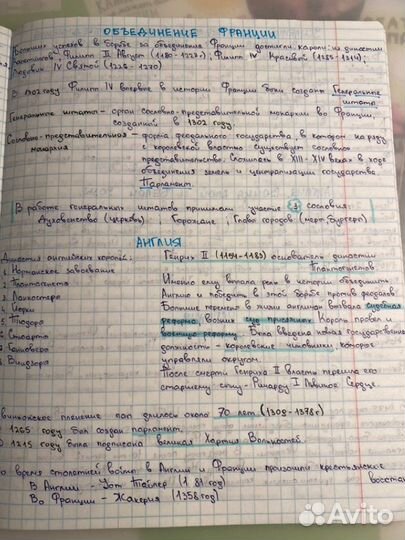 ОБЪЕДИНЕНИЕ ФРАНЦИИ
Больших успехов в борьбе за объединение Франции достигли короли из династии
Капетингов: Филипп II Август (1180-1223г.); Филипп IV Красивый (1285-1314);
Людовик IV Святой (1226-1270)
В 1302 году Филипп IV впервые в истории Франции были созданы Генеральные
штаты.
Генеральные штаты - орган сословно-представительной монархии во Франции,
созданной в 1302 году.
Сословно-представительная - форма феодального государства в котором наряду
монархия с королевской властью существует сословно
представительство. Сложилась в XIII-XIV веках в ходе
объединения земель и централизации государства.
Парламент.
В работе генеральных штатов принимали участие 3 сословия:
Духовенство (церковь) Горожане; Главы городов
АНГЛИЯ
Династия английских королей:
Генрих II (1154-1189) основатель династии
Плантогенетов.
1 Норманское завоевание
2 Плантогенета
3 Ланкастера
4 Йорки
5 Тюдора
6 Стюарта
Гановера
Виндзора
Именно ему выпала роль в истории объединить
Англию и победить в этой борьбе против феодалов.
Большие перемен в жизни англичан вызвала судебная
реформа, возник суд присяжных. Король провёл и
военную реформу. Была введена новая государственная
должность - королевские чиновники которые
управляли округом.
После смерти Генриха II власть перешла его
старшему сыну - Ричарду I Львиное Сердце.
пленение пап длилось около 70 лет (1309-1378г)
1265 году был создан парламент.
1215 году была подписана великая Хартия Вольностей.
время столетней войны в Англии и Франции произошли крестьянские
восста
В Англии - Уот Тайлер (1 81 год)
Во Франции - Жакерия (1358 год)
Avito